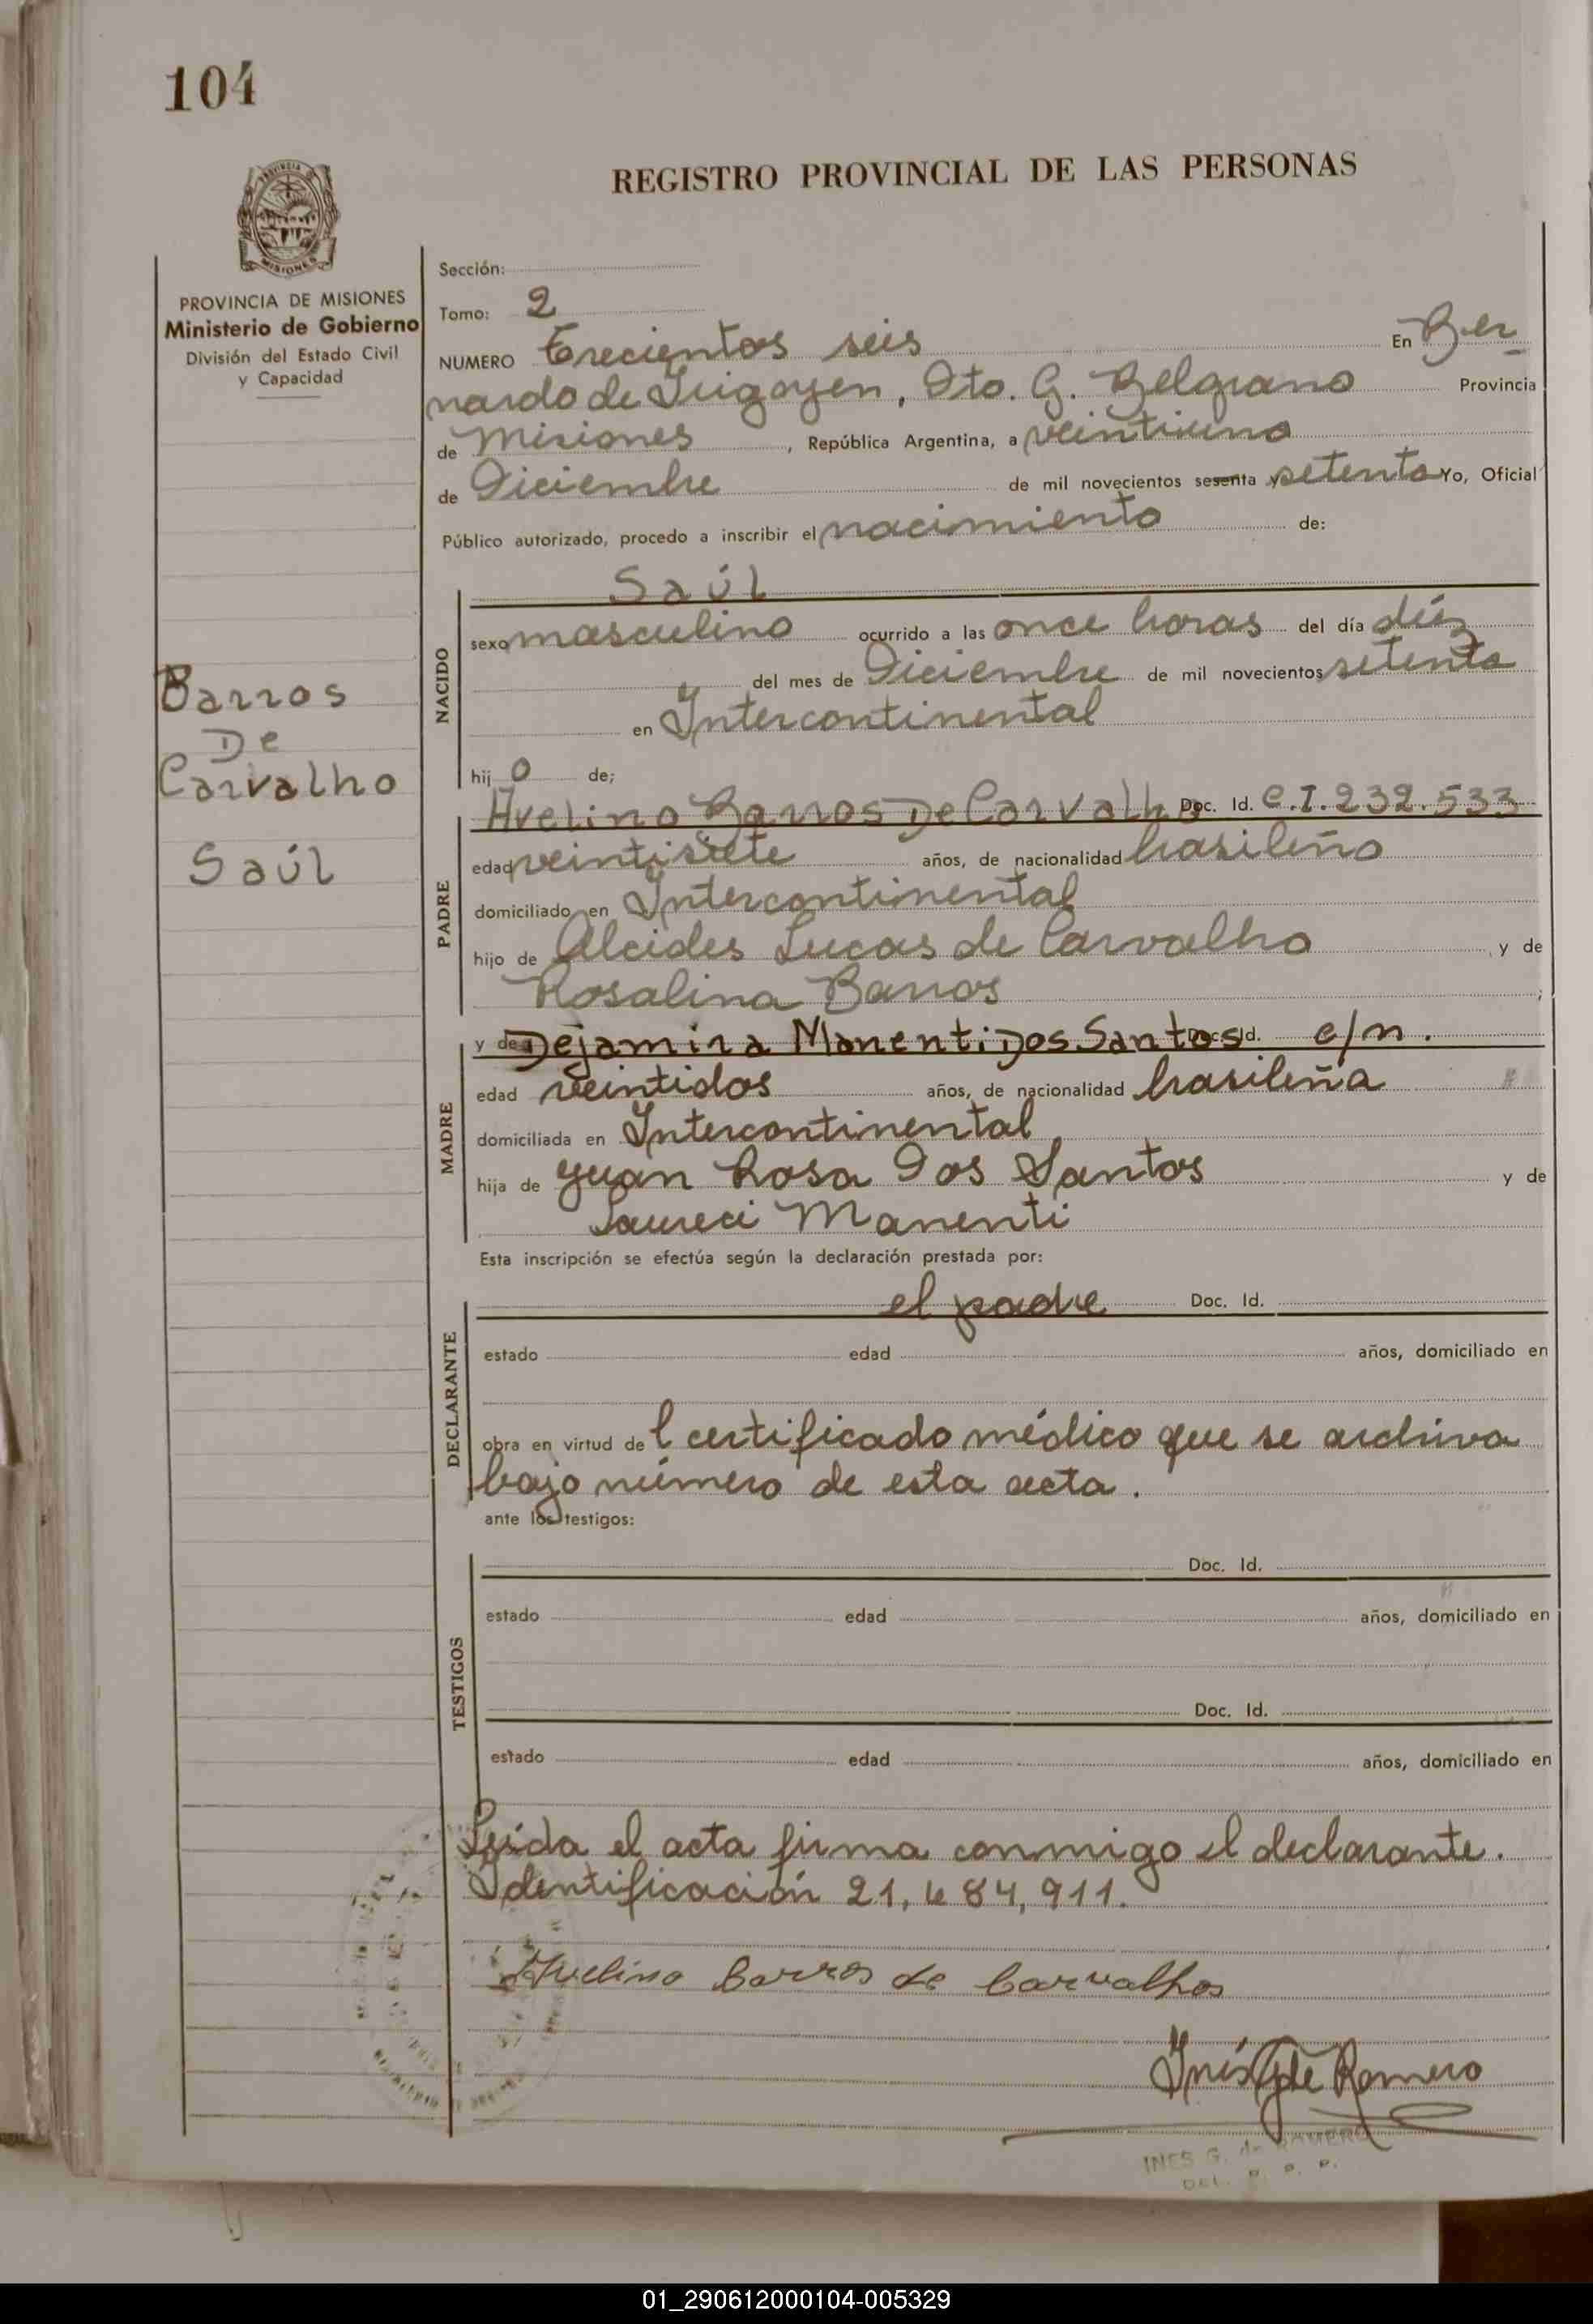 104
REGISTRO PROVINCIAL DE LAS PERSONAS
PROVINCIA DE MISIONES
Ministerio de Gobierno
División del Estado Civil
y Capacidad
Barros
De
Carvalho
Saúl
Sección:
Tomo: 2
NUMERO Trecientos seis En Ber
nardo de Irigoyen, Dto. G. Belgrano Provincia
de Misiones, República Argentina, a veintiuno
de Diciembre de mil novecientos sesenta y setenta Yo, Oficial
Público autorizado, procedo a inscribir el nacimiento de:
NACIDO
Saúl
sexo masculino ocurrido a las once horas del día diéz
del mes de Diciembre de mil novecientos setenta
en Intercontinental
hijo de;
PADRE
Avelino Barros De Carvalho Doc. Id. C.I. 232.533
edad veintisiete años, de nacionalidad brasileño
domiciliado en Intercontinental
hijo de Alcides Lucas de Carvalho, y de
Rosalina Barros;
MADRE
y de Dejamira Manenti Dos Santos Doc. Id. c/n.
edad veintidos años, de nacionalidad brasileña
domiciliada en Intercontinental
hija de Juan Rosa Dos Santos y de
Laureci Manenti
Esta inscripción se efectúa según la declaración prestada por:
DECLARANTE
el padre Doc. Id.
estado edad años, domiciliado en
obra en virtud del certificado médico que se archiva
bajo número de esta acta.
ante los testigos:
TESTIGOS
Doc. Id.
estado edad años, domiciliado en
Doc. Id.
estado edad años, domiciliado en
Leída el acta firma conmigo el declarante.
Identificación 21,484,911.
Avelino Barros de Carvalhos
Inés G de Romero
INES G. de ROMERO
DEL. R. P. P.
01_290612000104-005329